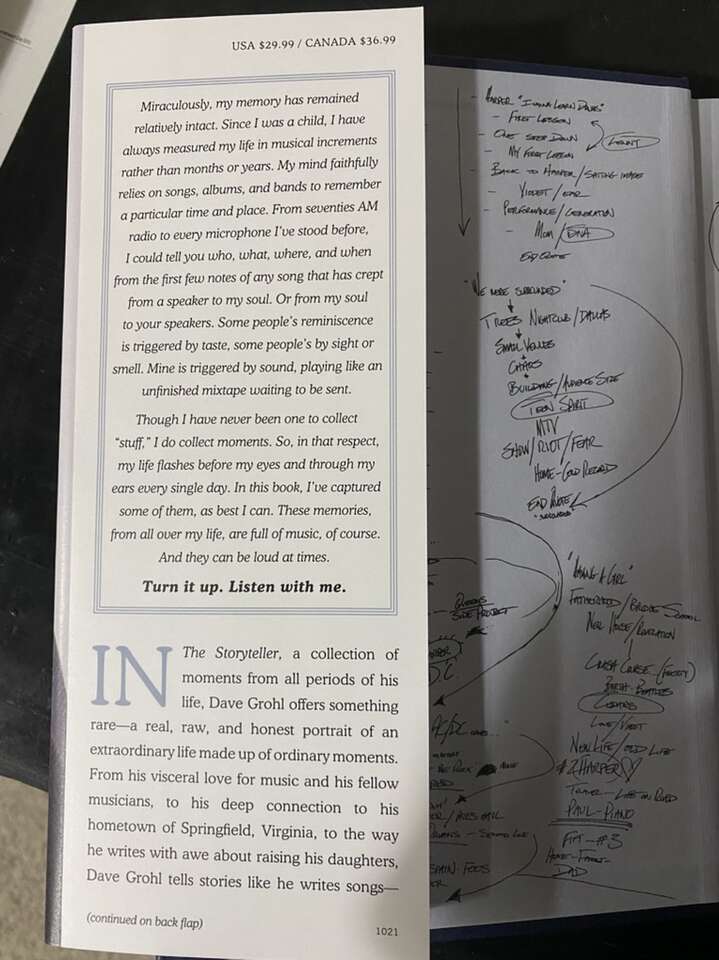 USA $29.99 / CANADA $36.99
Miraculously, my memory has remained
relatively intact. Since I was a child, I have
always measured my life in musical increments
rather than months or years. My mind faithfully
relies on songs, albums, and bands to remember
a particular time and place. From seventies AM
radio to every microphone I've stood before,
I could tell you who, what, where, and when
from the first few notes of any song that has crept
from a speaker to my soul. Or from my soul
to your speakers. Some people's reminiscence
is triggered by taste, some people's by sight or
smell. Mine is triggered by sound, playing like an
unfinished mixtape waiting to be sent.
Though I have never been one to collect
"stuff," I do collect moments. So, in that respect,
my life flashes before my eyes and through my
ears every single day. In this book, I've captured
some of them, as best I can. These memories,
from all over my life, are full of music, of course.
And they can be loud at times.
Turn it up. Listen with me.
IN The Storyteller, a collection of
moments from all periods of his
life, Dave Grohl offers something
rare—a real, raw, and honest portrait of an
extraordinary life made up of ordinary moments.
From his visceral love for music and his fellow
musicians, to his deep connection to his
hometown of Springfield, Virginia, to the way
he writes with awe about raising his daughters,
Dave Grohl tells stories like he writes songs—
(continued on back flap)
1021
- HARPER "I WANNA LEARN DRUMS"
- FIRST LESSON
- ONE SEED DOWN
- MY FIRST LESSON
LENNY
- BACK TO HARPER / SITTING IMAGE
- VIOLET / EAR
- PERFORMANCE / GENERATION
- MOM / DNA
END QUOTE
"WE WERE SURROUNDED"
TREES NIGHTCLUB / DALLAS
SMALL VENUES
CHAOS
BUILDING / AUDIENCE SIZE
TEEN SPIRIT
MTV
SHOW / RIOT / FEAR
HOME - GOLD RECORD
END QUOTE
"SURROUNDED"
QUEENS
SIDE PROJECT
"HAVING A GIRL"
FATHERHOOD / BRIDGE SCHOOL
NEW HOUSE / REVELATION
CRASH COURSE
BIRTH - BEATLES
LOVE / VIOLET
NEW LIFE / OLD LIFE
#2 HARPER
TRAVEL - LIFE ON ROAD
PAUL - PIANO
#3
DAD